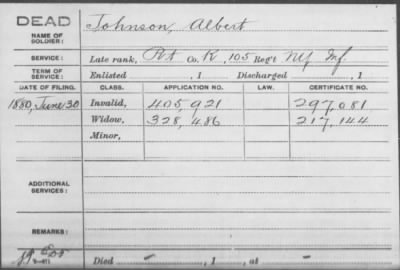 DEAD
Johnson, Albert
NAME OF SOLDIER:
SERVICE: Late rank, Pvt Co. K, 105 Reg't NY Inf.
TERM OF SERVICE: Enlisted , 1 Discharged , 1
DATE OF FILING. CLASS. APPLICATION NO. LAW. CERTIFICATE NO.
1880, June 30 Invalid, 405,921 297,081
Widow, 328,486 217,144
Minor,
ADDITIONAL SERVICES:
REMARKS:
Died , 1 , at